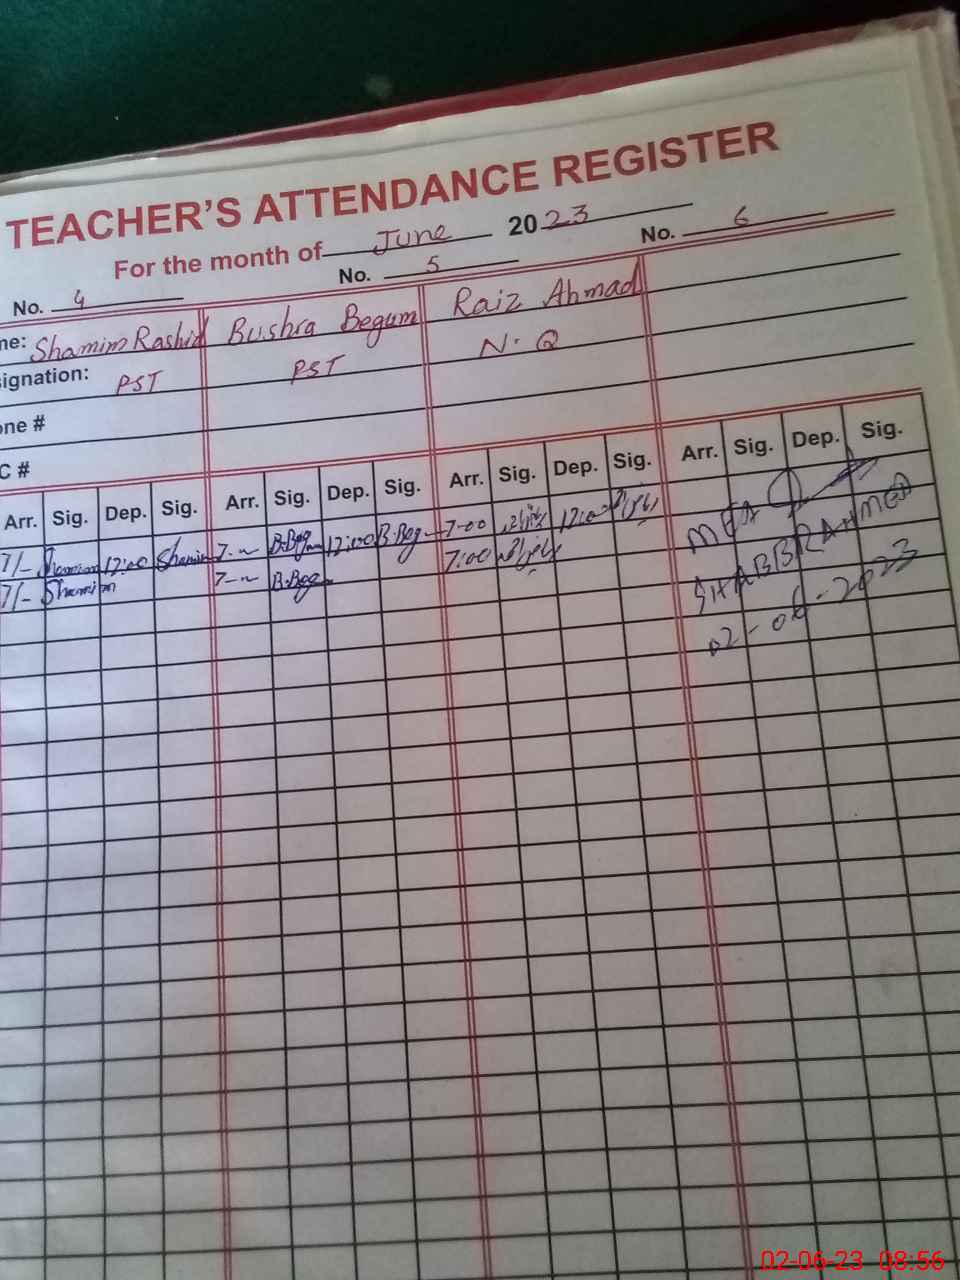 TEACHER'S ATTENDANCE REGISTER
For the month of June 2023
No. 4 No. 5 No. 6
me: Shamim Rashid Bushra Begum Raiz Ahmad
signation: PST PST N.Q
one #
C #
Arr. Sig. Dep. Sig. Arr. Sig. Dep. Sig. Arr. Sig. Dep. Sig. Arr. Sig. Dep. Sig.
7/- Shamim 12:00 Shamim 7-~ B.Beg 12:00 B.Beg 7-00 12:00
7/- Shamim 7-~ B.Beg 7:00
MEA
SHABBRAHMED
02-06-2023
02-06-23 08:56